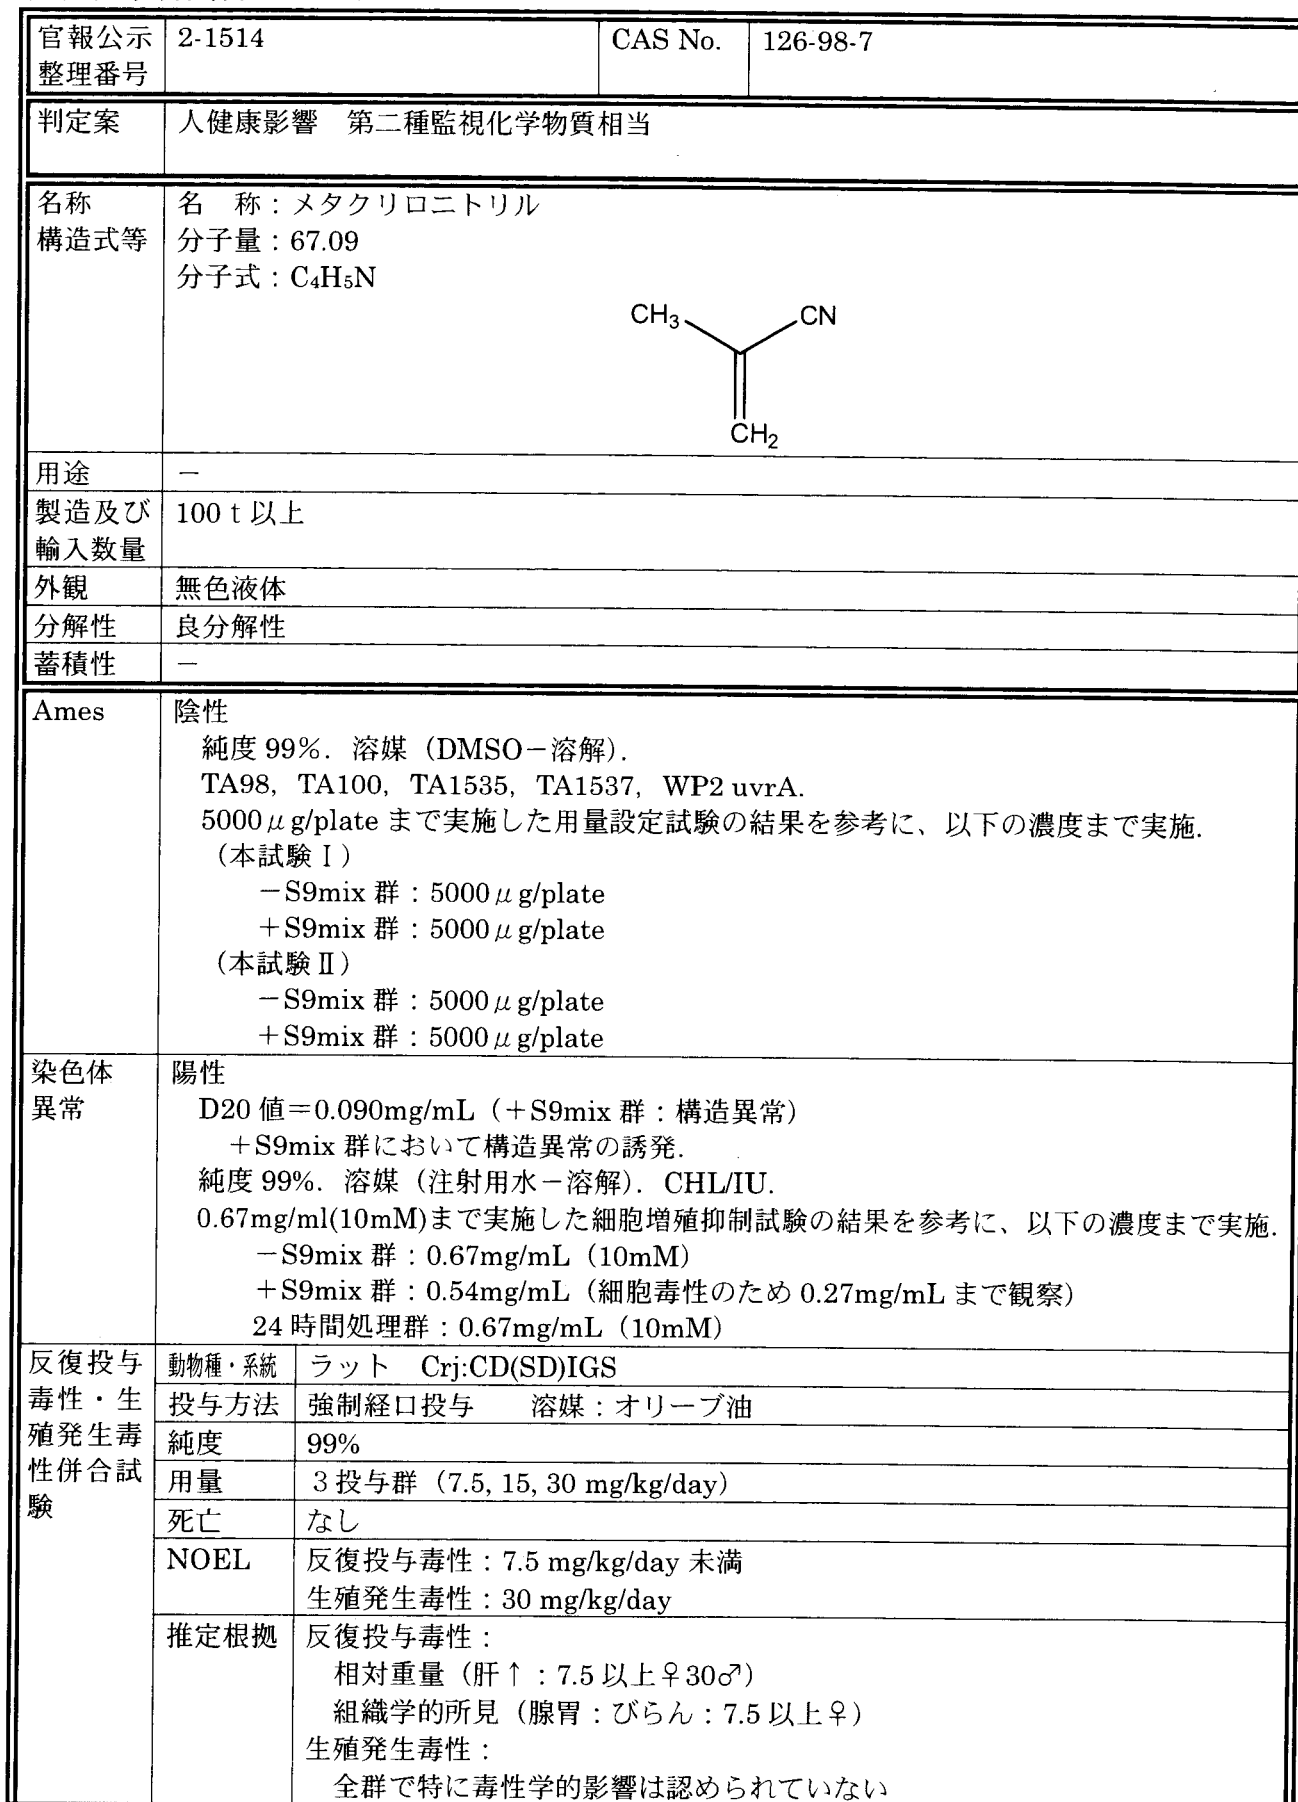 官報公示 2-1514 CAS No. 126-98-7
整理番号
判定案 人健康影響 第二種監視化学物質相当
名称 名 称：メタクリロニトリル
構造式等 分子量：67.09
分子式：C₄H₅N
CH₃ CN
CH₂
用途 －
製造及び 100ｔ以上
輸入数量
外観 無色液体
分解性 良分解性
蓄積性 －
Ames 陰性
純度 99%．溶媒（DMSO－溶解）．
TA98，TA100，TA1535，TA1537，WP2 uvrA.
5000μg/plate まで実施した用量設定試験の結果を参考に、以下の濃度まで実施．
（本試験Ⅰ）
－S9mix 群：5000μg/plate
＋S9mix 群：5000μg/plate
（本試験Ⅱ）
－S9mix 群：5000μg/plate
＋S9mix 群：5000μg/plate
染色体 陽性
異常 D20 値＝0.090mg/mL（＋S9mix 群：構造異常）
＋S9mix 群において構造異常の誘発．
純度 99%．溶媒（注射用水－溶解）．CHL/IU.
0.67mg/ml(10mM)まで実施した細胞増殖抑制試験の結果を参考に、以下の濃度まで実施．
－S9mix 群：0.67mg/mL（10mM）
＋S9mix 群：0.54mg/mL（細胞毒性のため 0.27mg/mL まで観察）
24 時間処理群：0.67mg/mL（10mM）
反復投与 動物種・系統 ラット Crj:CD(SD)IGS
毒性・生 投与方法 強制経口投与 溶媒：オリーブ油
殖発生毒 純度 99%
性併合試 用量 ３投与群（7.5, 15, 30 mg/kg/day）
験 死亡 なし
NOEL 反復投与毒性：7.5 mg/kg/day 未満
生殖発生毒性：30 mg/kg/day
推定根拠 反復投与毒性：
相対重量（肝↑：7.5 以上♀30♂）
組織学的所見（腺胃：びらん：7.5 以上♀）
生殖発生毒性：
全群で特に毒性学的影響は認められていない